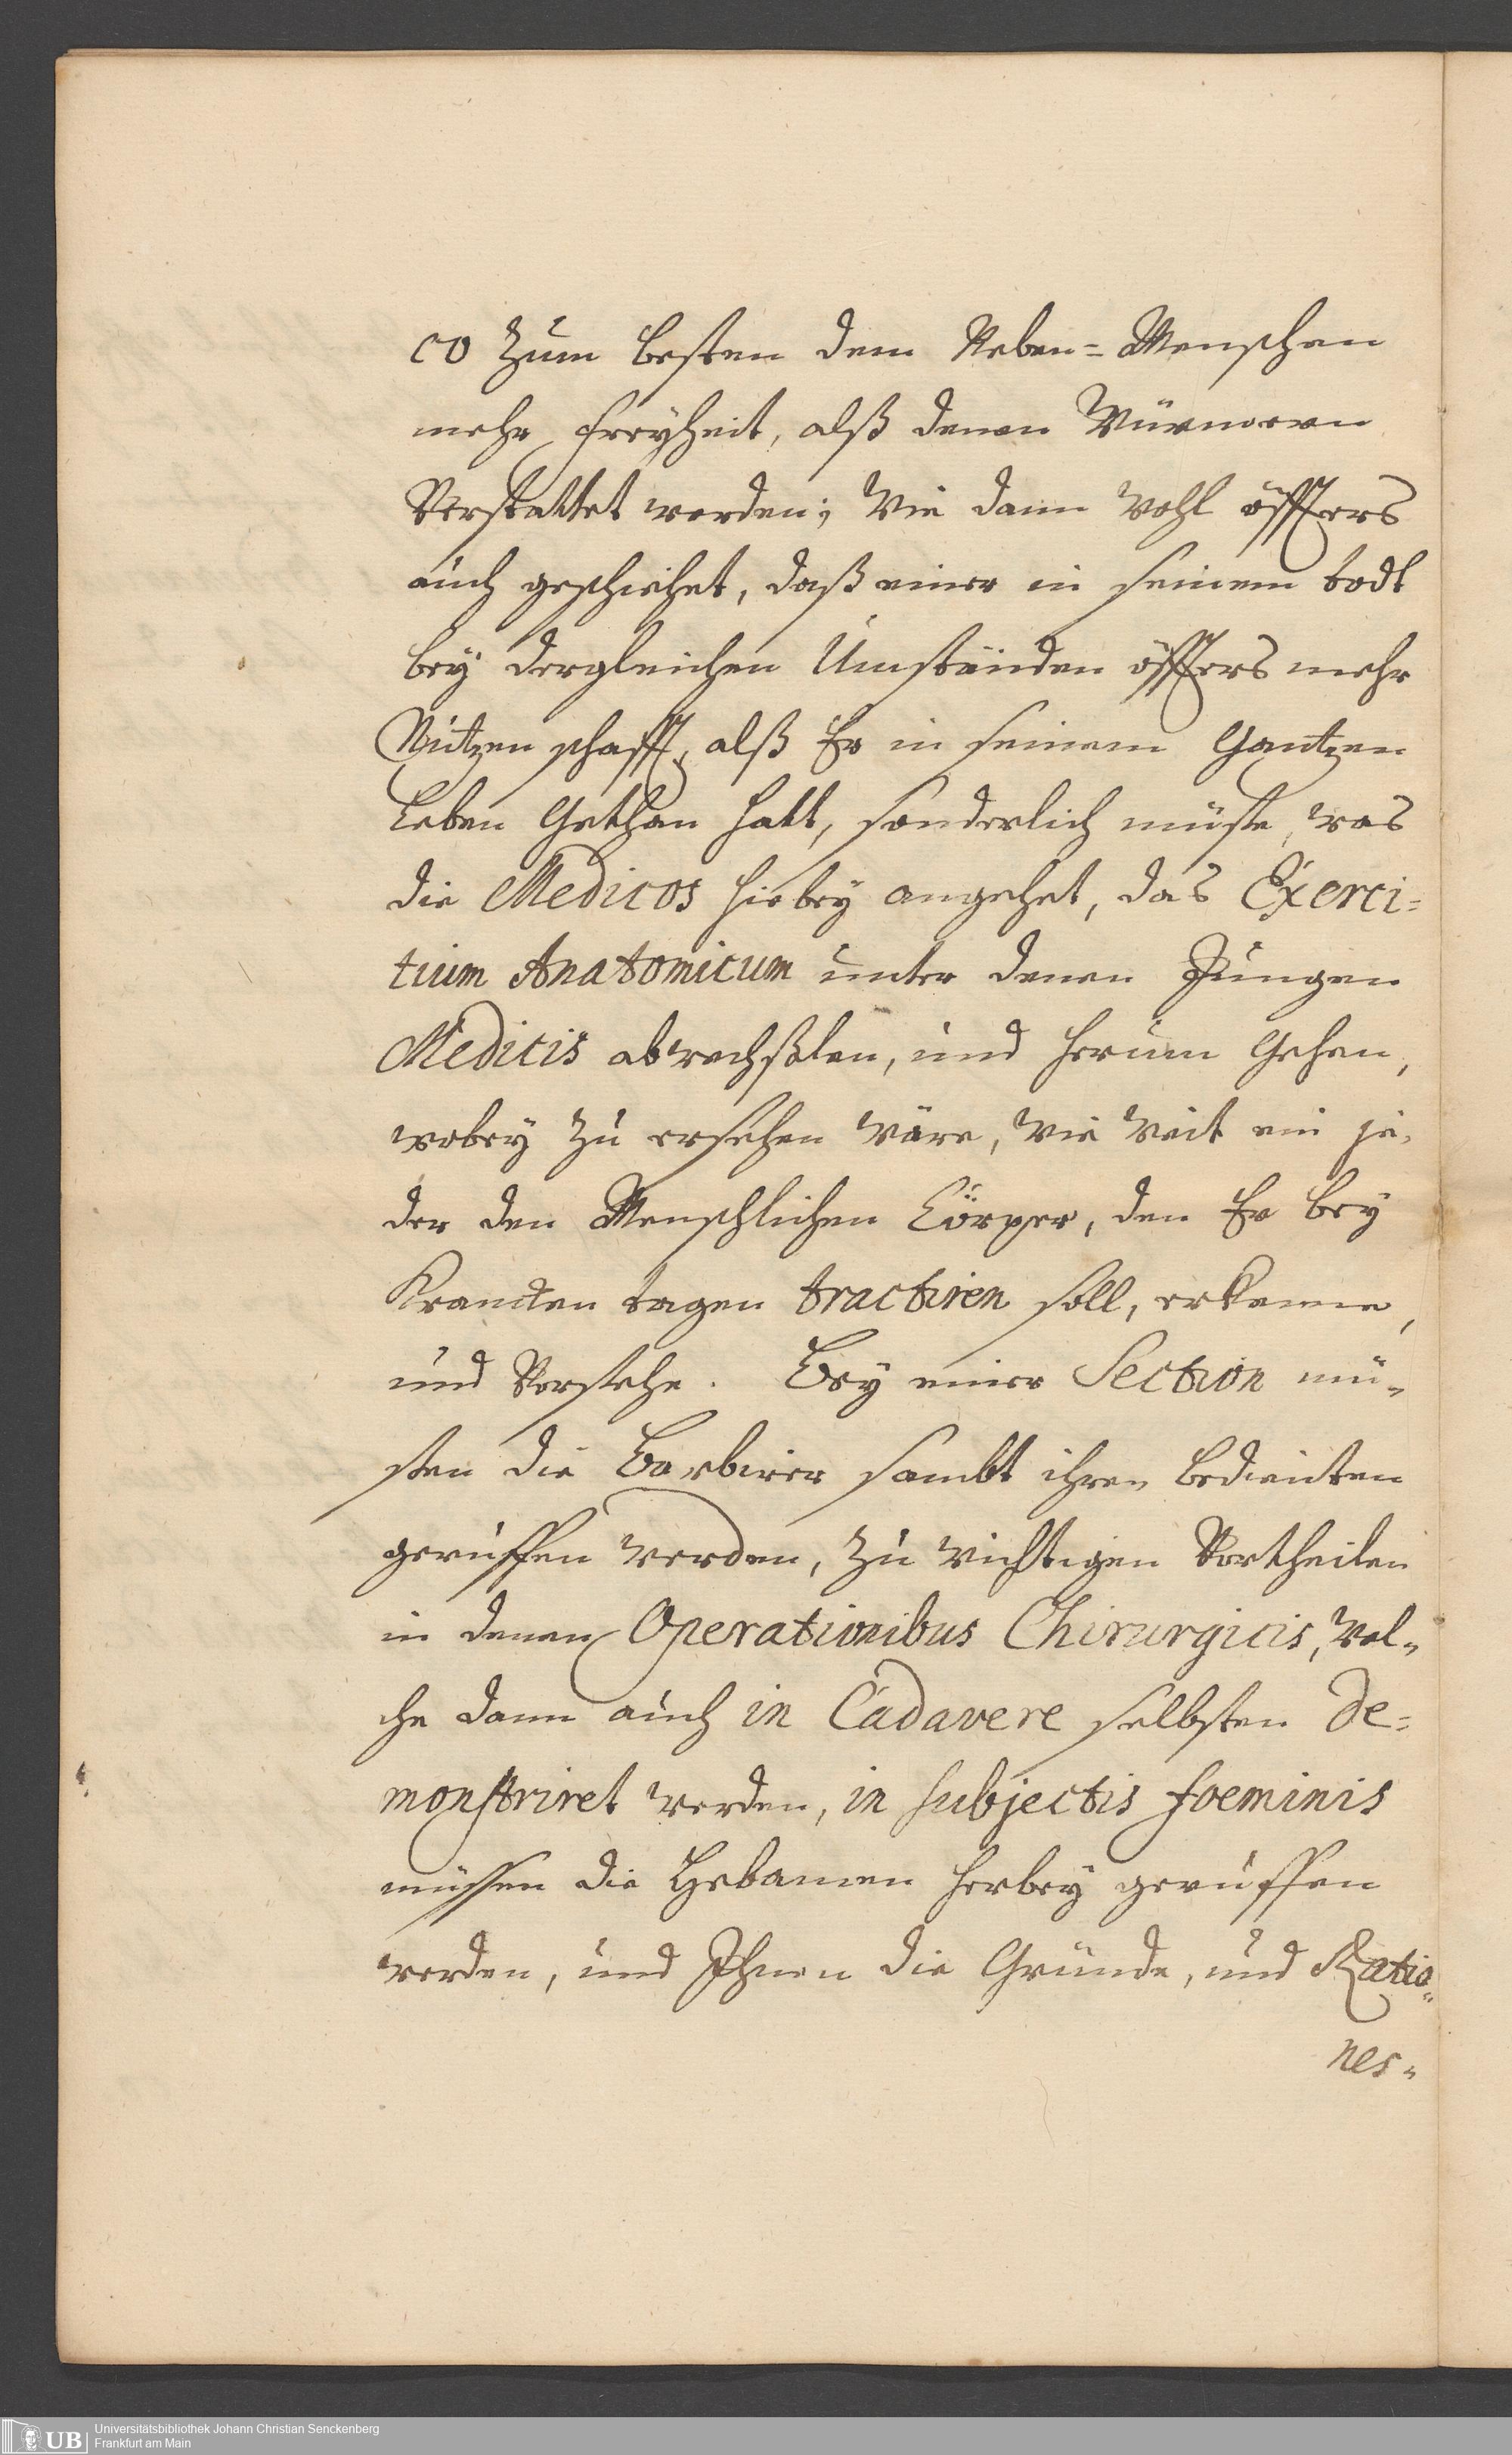 co zum besten dem Neben= Menschen
mehr freyheit, alß denen Würmeren
Verstattet werden; Wie dann Wohl öffters
auch geschiehet, daß einer in seinem todt
bey dergleichen Umständen öffters mehr
Nutzen schafft, alß Er in seinem Gantzen
Leben Gethan hatt, sonderlich müste, was
die Medicos hiebey angehet, das Exerci=
tium Anatomicum unter denen Jungen
Medicis abwechßlen, und herum Gehen,
wobey zu ersehen Wäre, Wie Weit ein je„
der den Menschlichen Cörper, den Er bey
Krancken tagen tractiren soll, erkenne,
und Verstehe. Bey einer Section mü„
sten die Barbirer sambt ihren bedienten
geruffen Werden, zu Wichtigen Vortheilen
in denen Operationibus Chirurgicis, Wel„
che dann auch in Cadavere selbsten de=
monstriret Werden, in subjectis foeminis
müssen die Hebamen herbey geruffen
werden, und Ihnen die Gründe, und Ratio„
nes„
UB Universitätsbibliothek Johann Christian Senckenberg
Frankfurt am Main